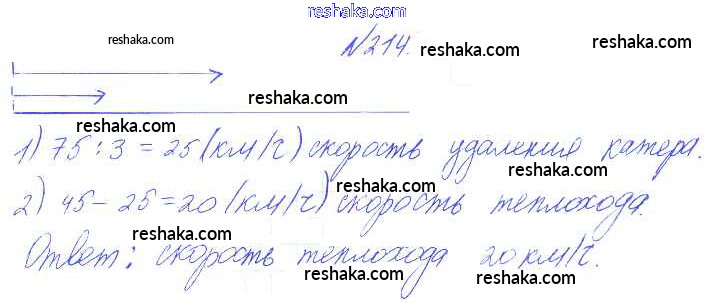 reshaka.com
reshaka.com №214. reshaka.com
reshaka.com
reshaka.com reshaka.com
1) 75 : 3 = 25 (км/ч) скорость удаления катера.
reshaka.com reshaka.com
2) 45 - 25 = 20 (км/ч) скорость теплохода.
reshaka.com reshaka.com reshaka.com
Ответ: скорость теплохода 20 км/ч.
reshaka.com reshaka.com